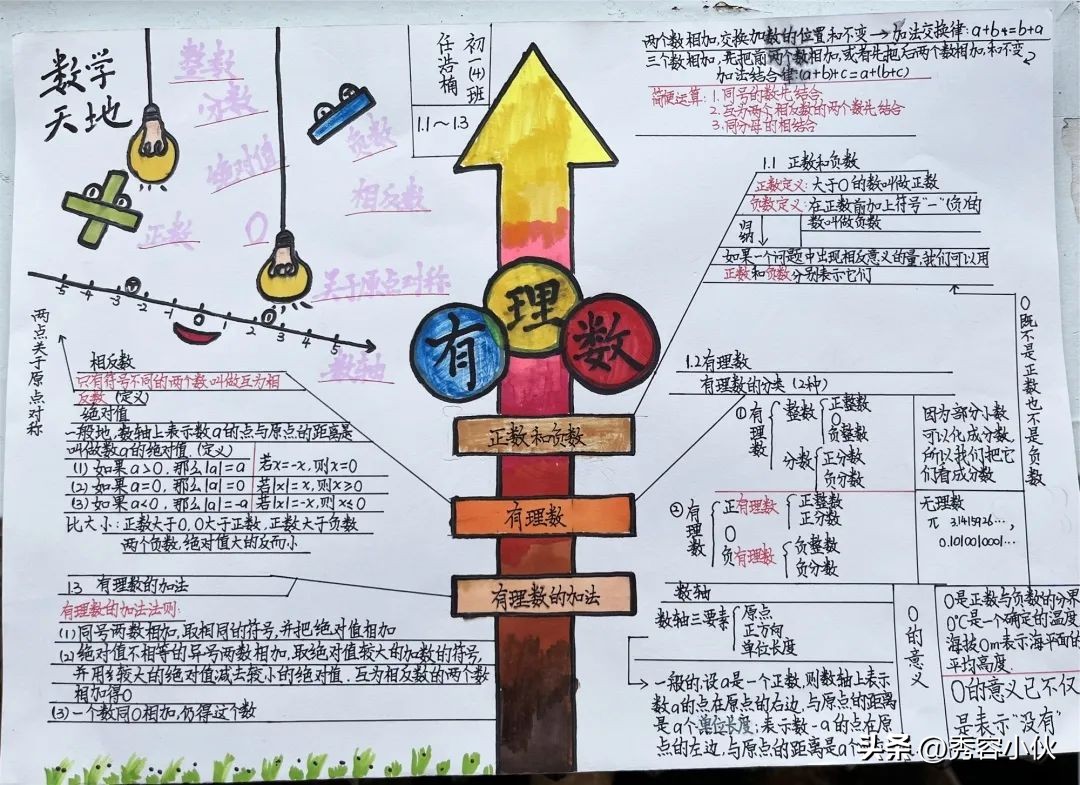 数学
天地
整数
分数
绝对值
正数
0
负数
相反数
关于原点对称
数轴
初一(4)班
任浩楠
1.1～1.3
两个数相加,交换加数的位置和不变→加法交换律:a+b=b+a
三个数相加,先把前两个数相加,或者先把后两个数相加,和不变
加法结合律:(a+b)+c=a+(b+c)
简便运算:1.同号的数先结合
2.互为相反数的两个数先结合
3.同分母的相结合
1.1 正数和负数
正数定义:大于0的数叫做正数
负数定义:在正数前加上符号"-"(负)的
数叫做负数
归纳
如果一个问题中出现相反意义的量,我们可以用
正数和负数分别表示它们
0既不是正数也不是负数
有理数
-5 -4 -3 -2 -1 0 1 2 3 4 5
两点关于原点对称
相反数
只有符号不同的两个数叫做互为相
反数 (定义)
绝对值
一般地,数轴上表示数a的点与原点的距离是
叫做数a的绝对值.(定义)
(1)如果a>0,那么|a|=a 若x=-x,则x=0
(2)如果a=0,那么|a|=0 若|x|=x,则x≥0
(3)如果a<0,那么|a|=-a 若|x|=-x,则x≤0
比大小:正数大于0,0大于正数,正数大于负数
两个负数,绝对值大的反而小
正数和负数
有理数
有理数的加法
1.2有理数
有理数的分类(2种)
①有理数
整数
正整数
0
负整数
分数
正分数
负分数
因为部分小数
可以化成分数,
所以我们把它
们看成分数
②有理数
正有理数
正整数
正分数
0
负有理数
负整数
负分数
无理数
π 3.1415926…,
0.1010010001…
1.3 有理数的加法
有理数的加法法则:
(1)同号两数相加,取相同的符号,并把绝对值相加
(2)绝对值不相等的异号两数相加,取绝对值较大的加数的符号,
并用较大的绝对值减去较小的绝对值.互为相反数的两个数
相加得0
(3)一个数同0相加,仍得这个数
数轴
数轴三要素
原点
正方向
单位长度
一般的,设a是一个正数,则数轴上表示
数a的点在原点的右边,与原点的距离
是a个单位长度;表示数-a的点在原
点的左边,与原点的距离是a个
0的意义
0是正数与负数的分界
0℃是一个确定的温度
海拔0m表示海平面的
平均高度.
0的意义已不仅
是表示"没有"
头条@秀容小伙